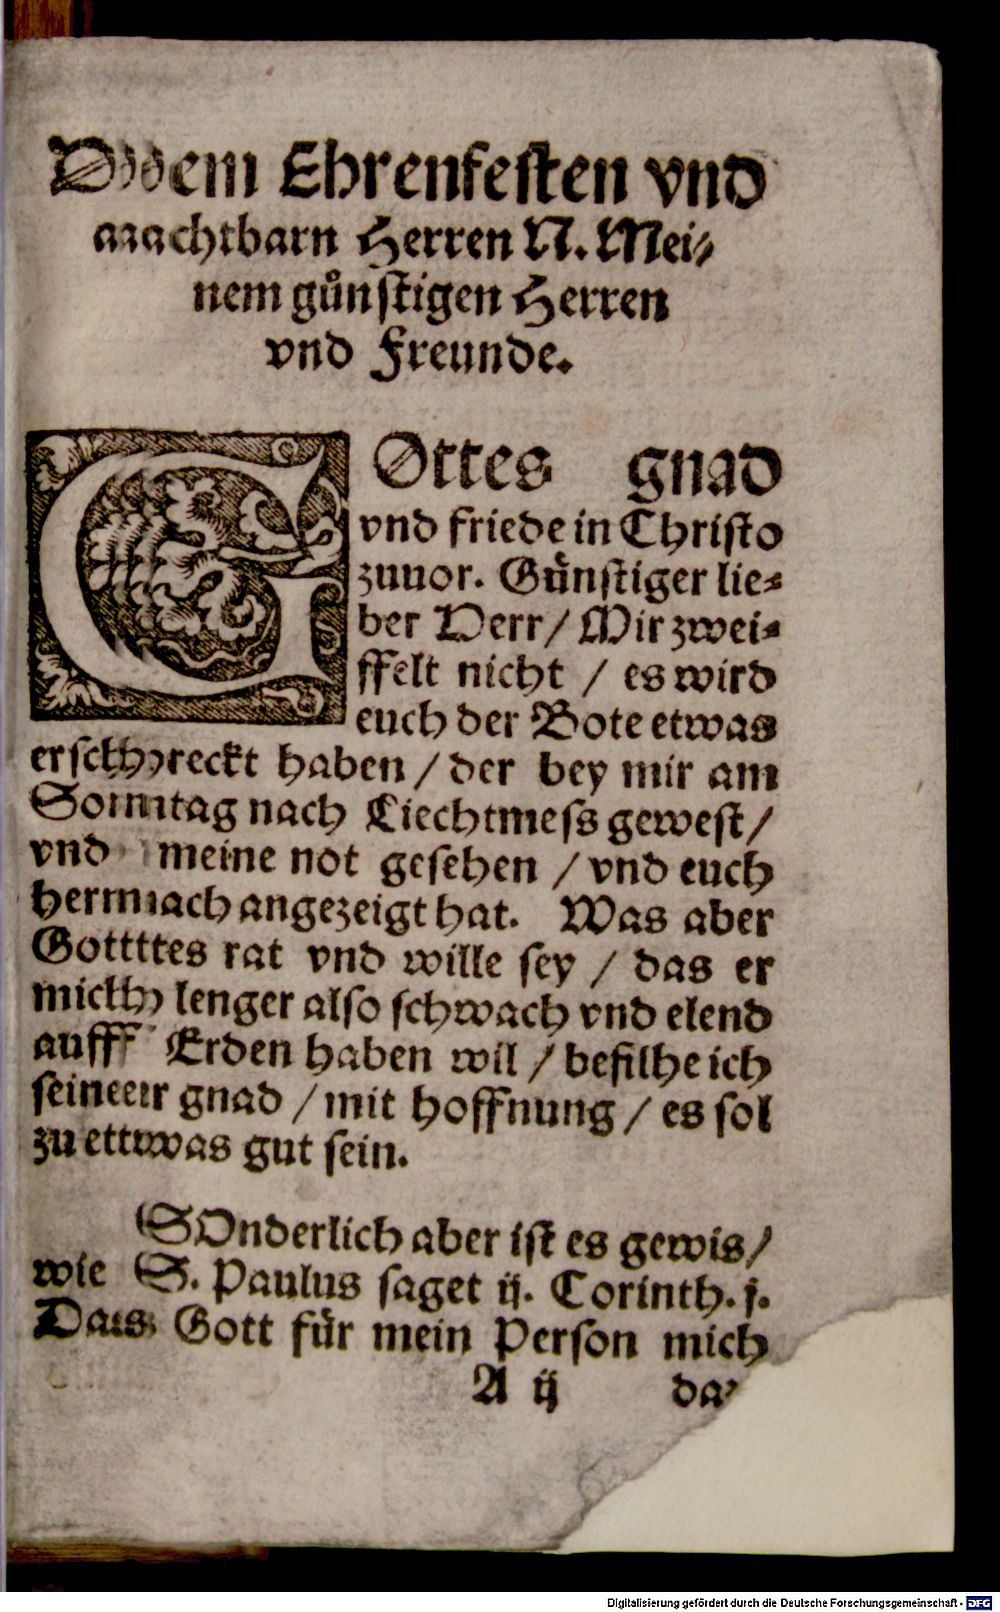 Dem Ehrenfesten vnd
achtbarn Herren N. Mei⸗
nem guͤnstigen Herren
vnd Freunde.
GOttes gnad
vnd friede in Christo
zuuor. Guͤnstiger lie⸗
ber Herr / Mir zwei⸗
ffelt nicht / es wird
euch der Bote etwas
erschreckt haben / der bey mir am
Sontag nach Liechtmess gewest /
vnd meine not gesehen / vnd euch
hernach angezeigt hat. Was aber
Gottes rat vnd wille sey / das er
mich lenger also schwach vnd elend
auff Erden haben wil / befilhe ich
seiner gnad / mit hoffnung / es sol
zu etwas gut sein.
SOnderlich aber ist es gewis /
wie S. Paulus saget ij. Corinth. j.
Das Gott fuͤr mein Person mich
A ij
Digitalisierung gefördert durch die Deutsche Forschungsgemeinschaft - DFG